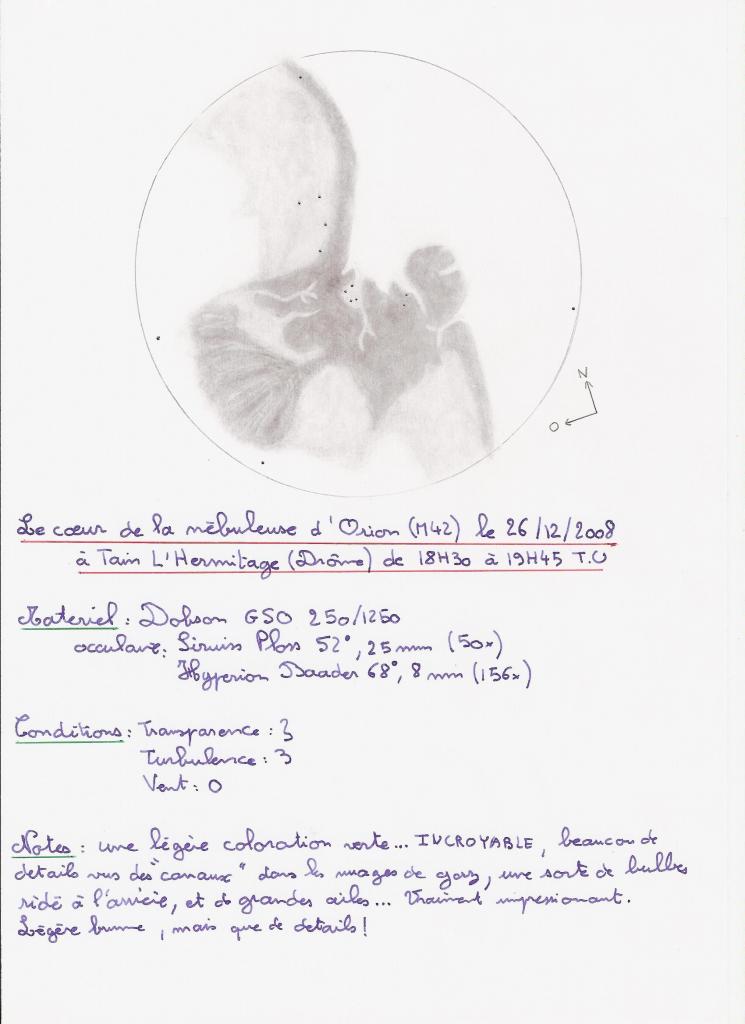 N
O
Le cœur de la nébuleuse d'Orion (M42) le 26/12/2008
à Tain L'Hermitage (Drôme) de 18H30 à 19H45 T.U
Materiel : Dobson GSO 250/1250
occulaire : Siruiss Ploss 52°, 25 mm (50x)
Hyperion Baader 68°, 8 mm (156x)
Conditions : Transparence : 3
Turbulence : 3
Vent : 0
Notes : une légère coloration verte... INCROYABLE, beaucou de
details vus des "canaux" dans les nuages de gaz, une sorte de bulles
ridé à l'arrière, et de grandes ailes... Vraiment impressionant.
Légère brume, mais que de details !